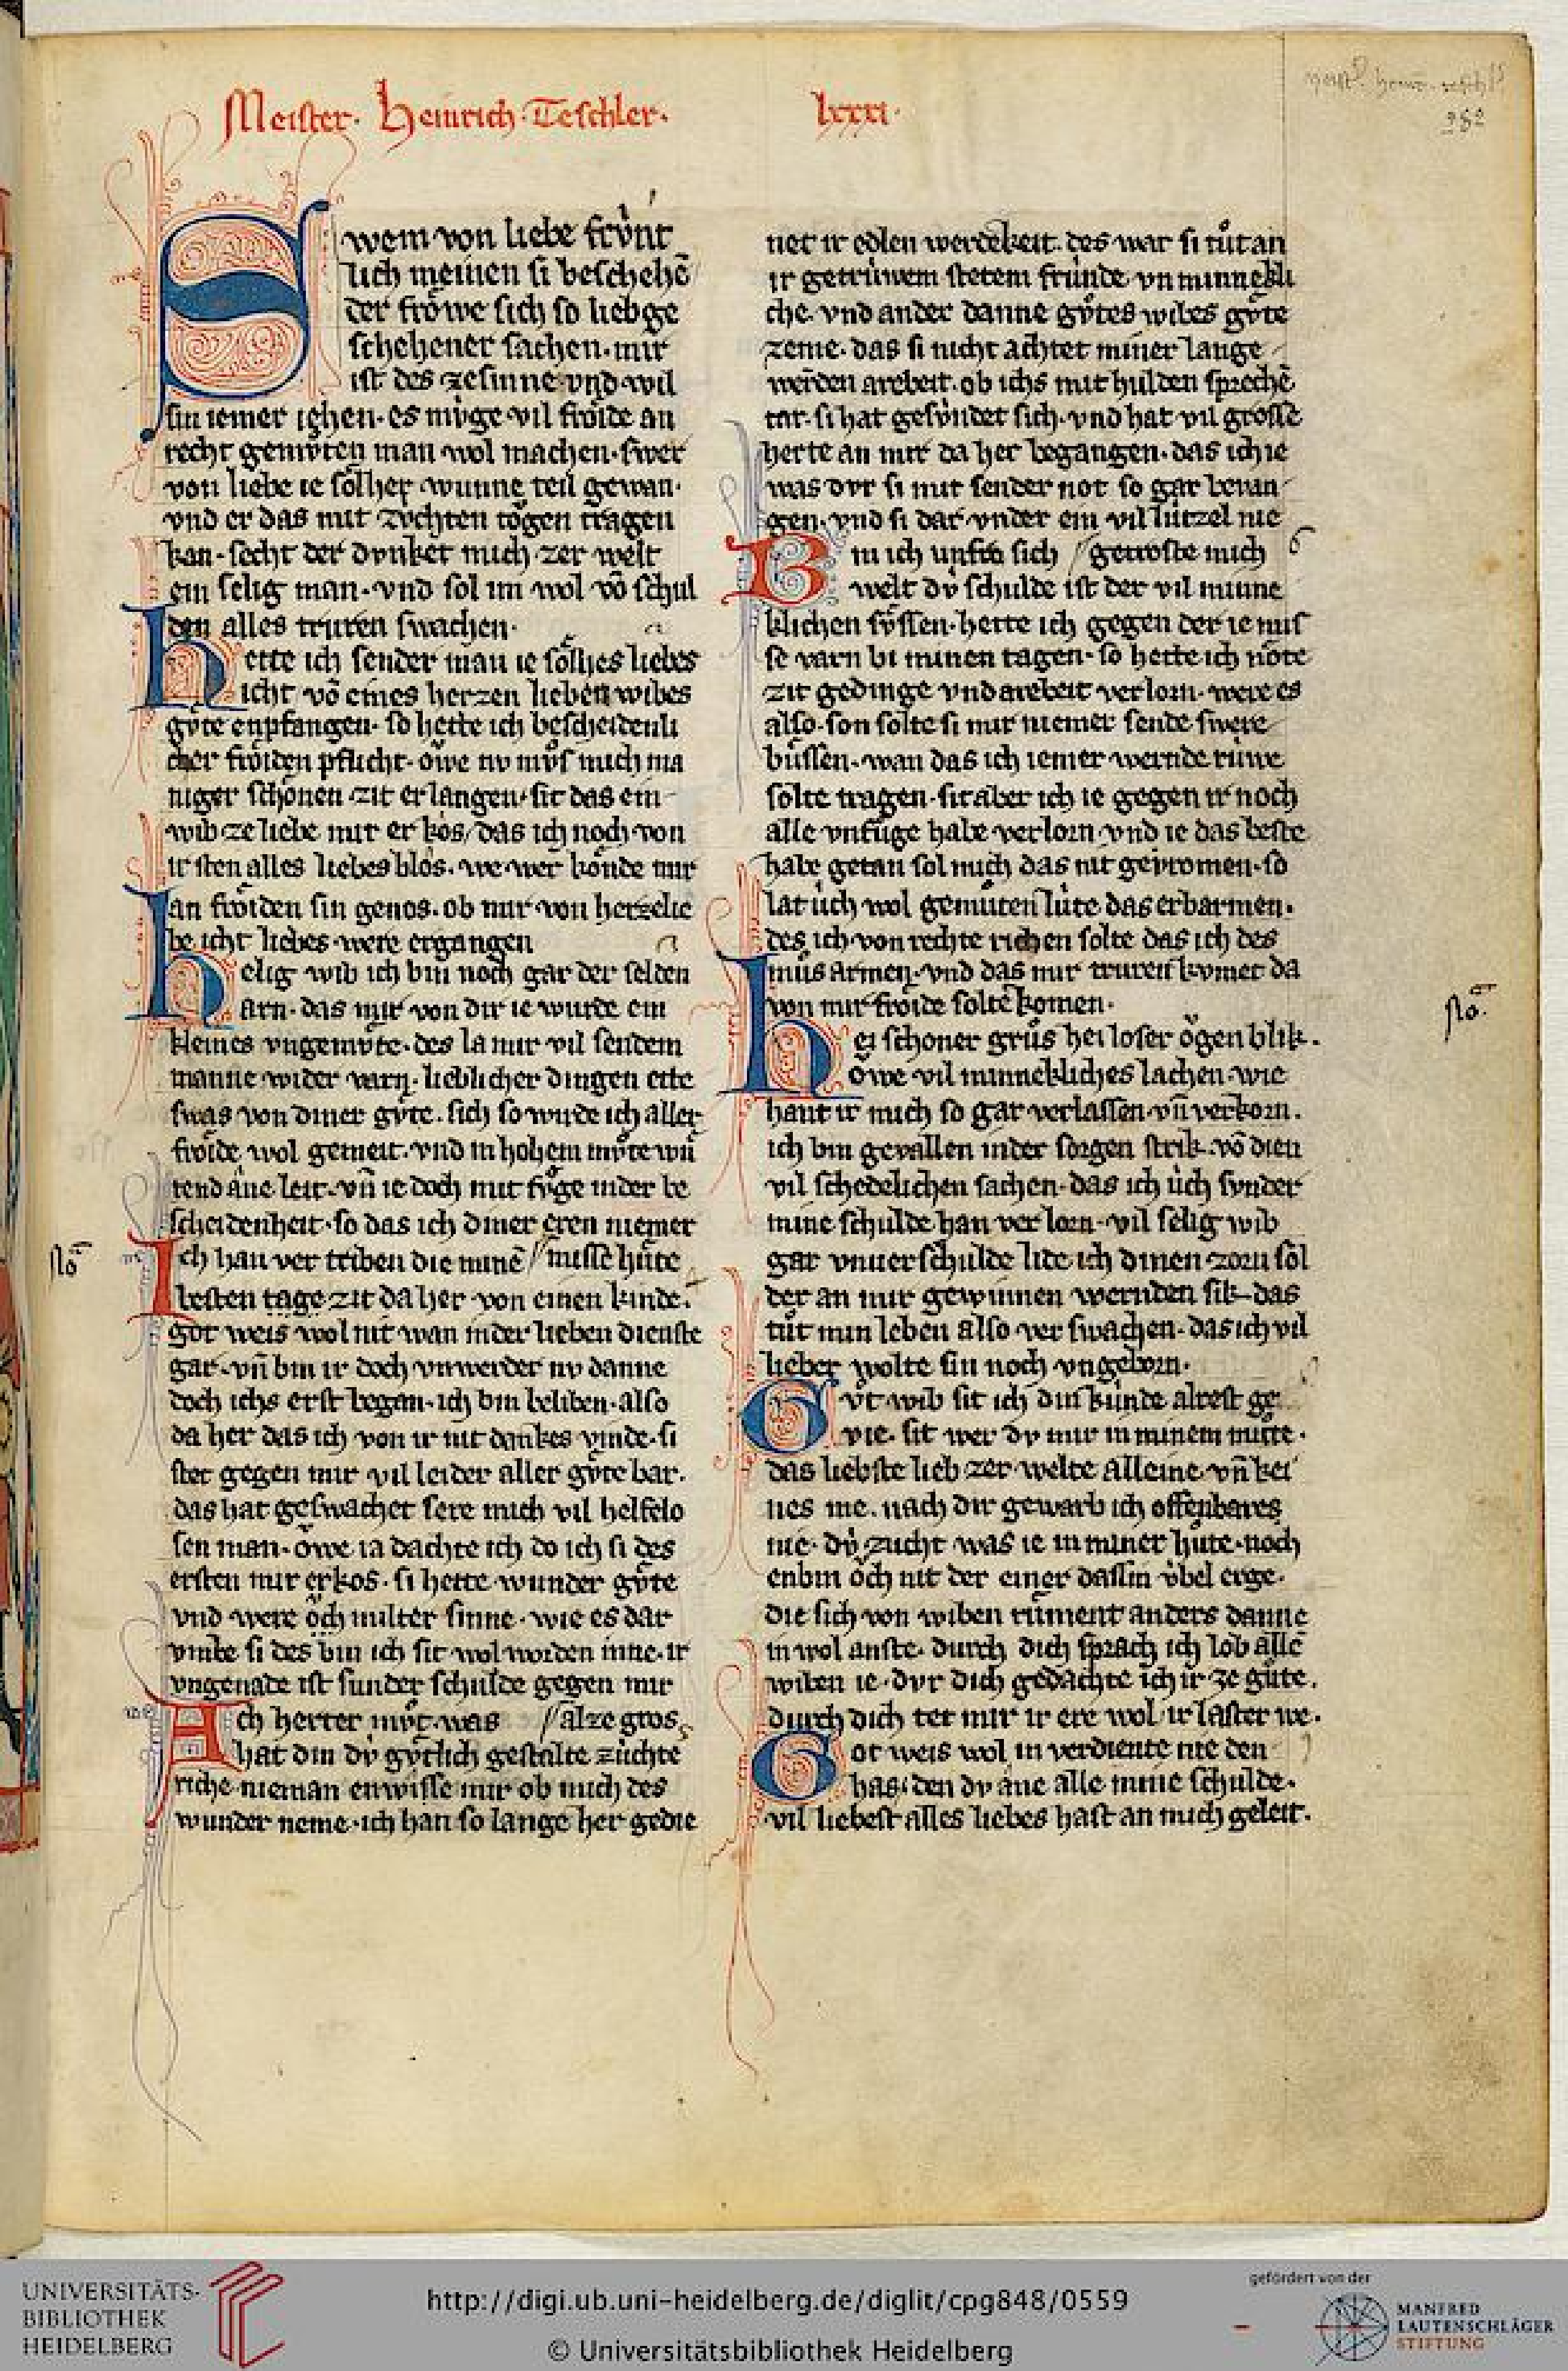 Meister· Heinrich·Teschler· lxxxi·
282
Swem von liebe frv́nt
lich meinen si beschehē
der frȯ́we sich so lieb ge
schehener sachen·mir
ist des ze sinne vnd wil
sin iemer iehen·es mv́ge vil frȯ́ide an
recht gemvͦten man wol machen·swer
von liebe ie sȯ́lher wunne teil gewan·
vnd er das mit zv́chten tȯgen tragen
kan·secht der dvnket mich zer welt
ein selig man·vnd sol im wol vō schul
den alles truren swachen·
Hette ich sender man ie sȯ́lhes liebes
icht vō eines herzen lieben wibes
gv́te enpfangen·so hette ich bescheidenli
cher frȯ́iden pflicht·owe nv mvͦs mich ma
niger schȯ́nen zit er langen·sit das ein
wib ze liebe mir er kos/das ich noch von
ir sten alles liebes blos·we wer kȯ́nde mir
an frȯ́iden sin genos·ob mir von herzelie
be icht liebes were ergangen
Helig wib ich bin noch gar der selden
arn·das mir von dir ie wurde ein
kleines vngemvͤte·des la mir vil sendem
manne wider varn·lieblicher dingen ette
swas von diner gv́te·sich so wurde ich aller
frȯ́ide wol gemeit·vnd in hohem mvͦte wū
rend âne leit·vn̄ ie doch mit fvͦge in der be
scheidenheit·so das ich diner eren niemer
Ich han ver triben die minē //misse hūte
besten tage zit da her von einen kinde·
got weis wol nit wan in der lieben dienste
gar·vn̄ bin ir doch vnwerder nv danne
doch ichs erst began·ich bin beliben·also
da her das ich von ir nit dankes vinde·si
stet gegen mir vil leider aller gv́te bar·
das hat geswachet sere mich vil helfelo
sen man·owe ia dachte ich do ich si des
ersten mir erkos·si hette wunder gv́te
vnd were ȯch milter sinne·wie es dar
vmbe si des bin ich sit wol worden inne·ir
vngenade ist sunder schulde gegen mir
Ach herter mvͦt·was //al ze gros
hat din dv́ gv́tlich gestalte zúchte
riche·nieman en wisse mir ob mich des
wunder neme·ich han so lange her gedie
net ir edlen werdekeit·des war si tuͦt an
ir getrúwem stetem frúnde·vn minnekli
che·vnd ander danne gvͦtes wibes gv́te
zeme·das si nicht achtet miner lange
werden arebeit·ob ichs mit hulden sprechē
tar·si hat gesv́ndet sich·vnd hat vil grosse
herte an mir da her begangen·das ich ie
was dvr si mit sender not so gar bevan
gen·vnd si dar vnder ein vil lútzel nie
Bin ich unfro sich //getroste mich
welt dv́ schulde ist der vil minne
klichen sv́ssen·hette ich gegen der ie mis
se varn bi minen tagen·so hette ich nȯte
zit gedinge vnd arebeit verlorn·were es
also·son solte si mir niemer sende swere
buͤssen·wan das ich iemer wernde rúwe
solte tragen·sit aber ich ie gegen ir noch
alle vnfuͦge habe verlorn vnd ie das beste
habe getan sol mich das nit gevromen·so
lat úch wol gemuͦten lúte das erbarmen·
des ich von rechte richen solte das ich des
muͦs armen·vnd das mir truren komet da
von mir froide solte komen·
Hei schoner gruͦs hei loser ȯgen blik·
owe vil minnekliches lachen·wie
hant ir mich so gar verlassen·vn̄ verkorn·
ich bin gevallen in der sorgen strik·vō dien
vil schedelichen sachen·das ich úch svnder
mine schulde han verlorn·vil selig wib
gar vnuerschulde lide ich dinen zorn sol
der an mir gewinnen wernden sik·das
tuͦt min leben also ver swachen·das ich vil
lieber wolte sin noch vngeborn·
Gvͦt wib sit ich din kúnde alrest ge
vie·sit wer dv mir in minem muͦte·
das liebste lieb zer welte alleine·vn̄ kei
nes nie·nach dir gewarb ich offenbares
nie·dv́ zucht was ie in miner huͦte·noch
enbin ȯch nit der einer das sin v́bel erge·
die sich von wiben ruͤment anders danne
in wol anste·durch dich sprach ich lob allē
wiben ie·dvr dich gedachte ich ir ze guͦte·
durch dich tet mir ir ere wol ir laster we·
Got weis wol in verdiente nie den
has·den dv âne alle mine schulde·
vil liebest alles liebes hast an mich geleit·
UNIVERSITÄTS-
BIBLIOTHEK
HEIDELBERG
http://digi.ub.uni-heidelberg.de/diglit/cpg848/0559
© Universitätsbibliothek Heidelberg
gefördert von der
MANFRED
LAUTENSCHLÄGER
STIFTUNG